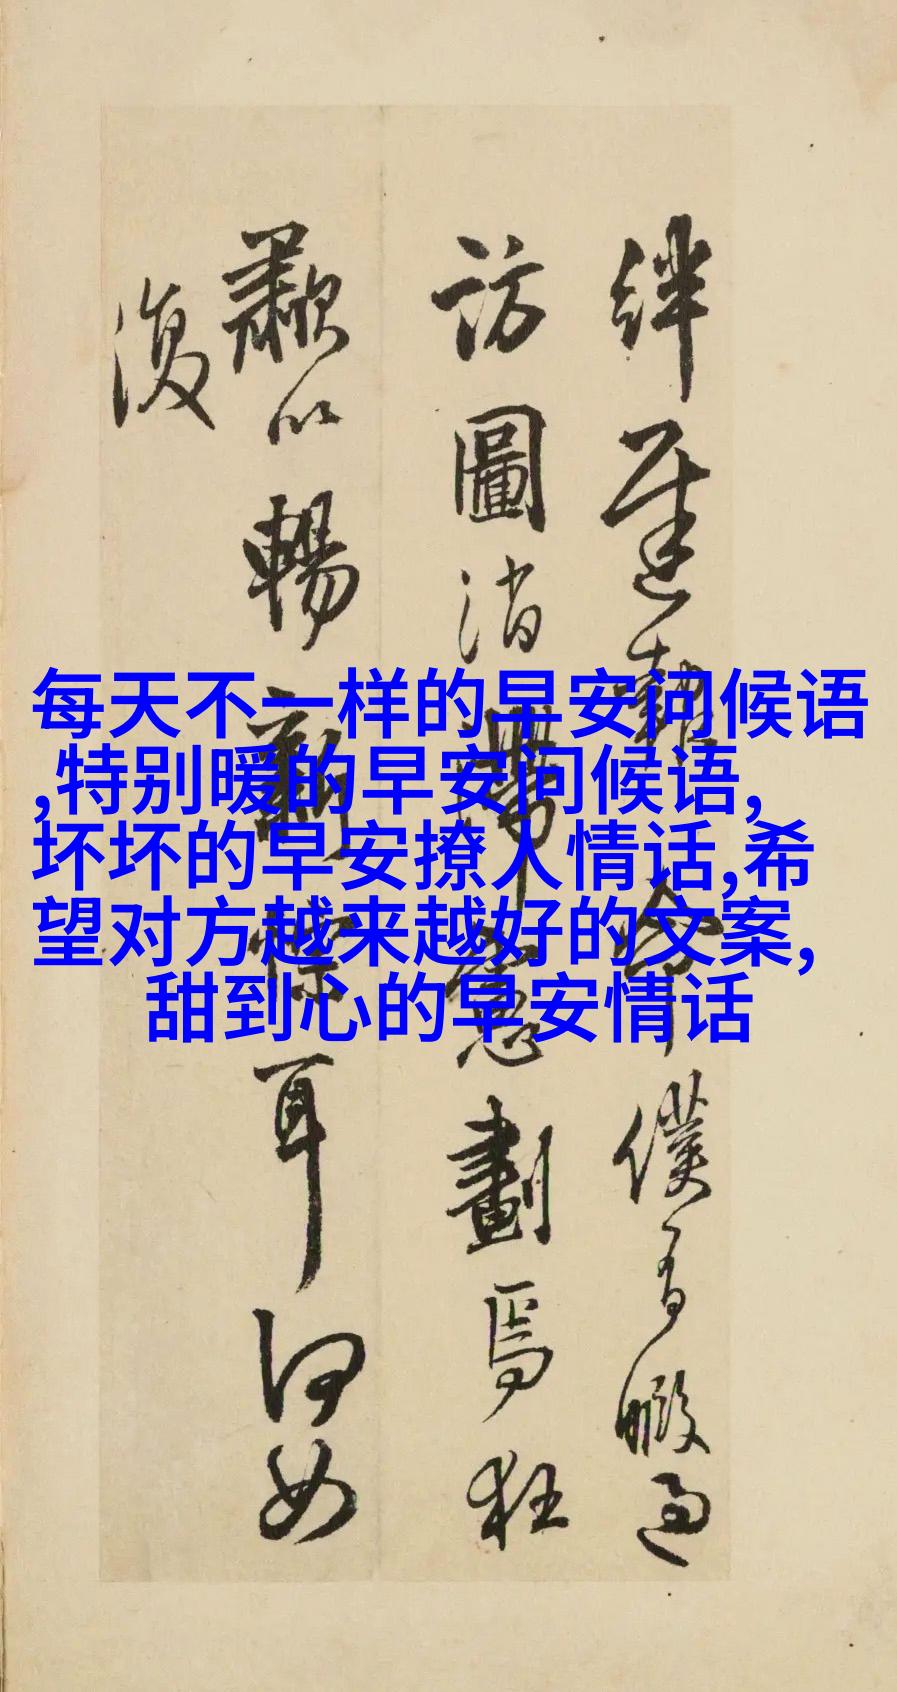 絆
訪圖消
以暢
復
耳何如
劃焉狂
僕有暇過
每天不一样的早安问候语
,特别暖的早安问候语,
坏坏的早安撩人情话,希
望对方越来越好的文案,
甜到心的早安情话